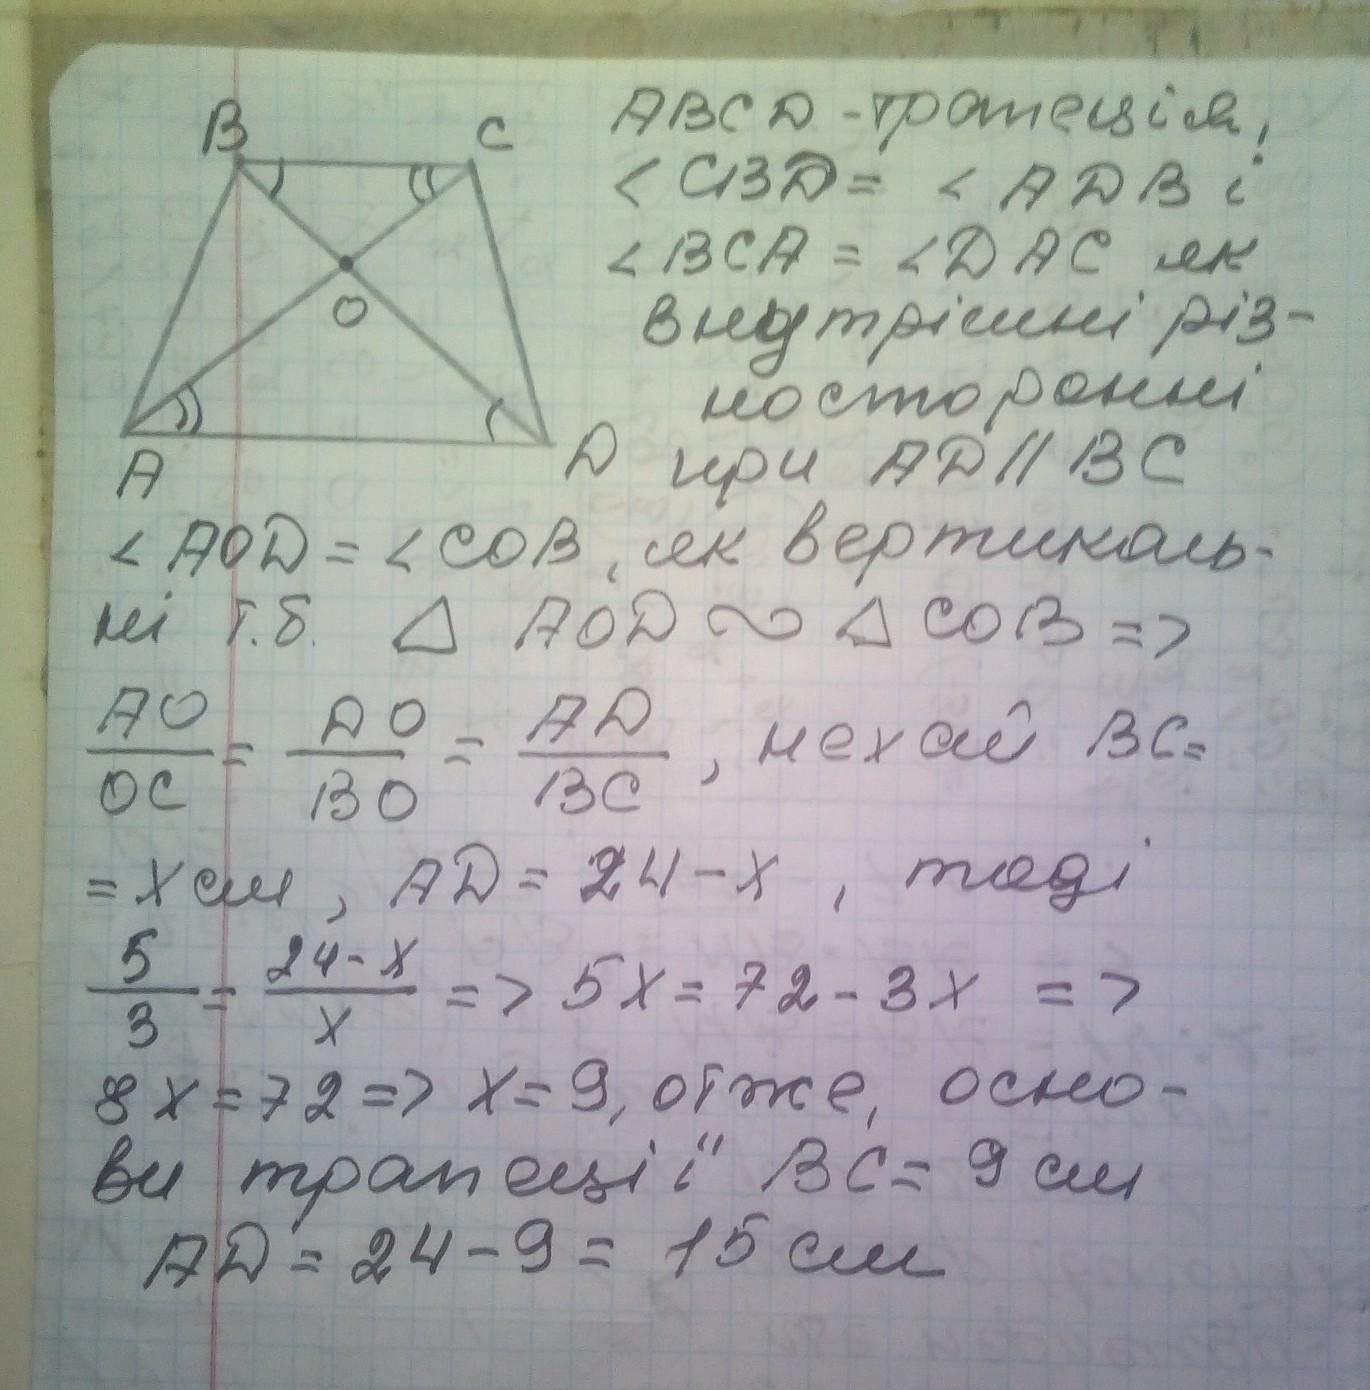 B C
O
A D
ABCD - трапеція,
< CBD = < ADB і
< BCA = < DAC як
внутрішні різ-
носторонні
при AD || BC
< AOD = < COB, як вертикаль-
ні т.б. △ AOD ∾ △ COB =>
AO/OC = DO/BO = AD/BC, нехай BC=
= x см, AD = 24 - x, тоді
5/3 = 24-x/x => 5x = 72 - 3x =>
8x = 72 => x = 9, отже, осно-
ви трапеції BC = 9 см
AD = 24 - 9 = 15 см